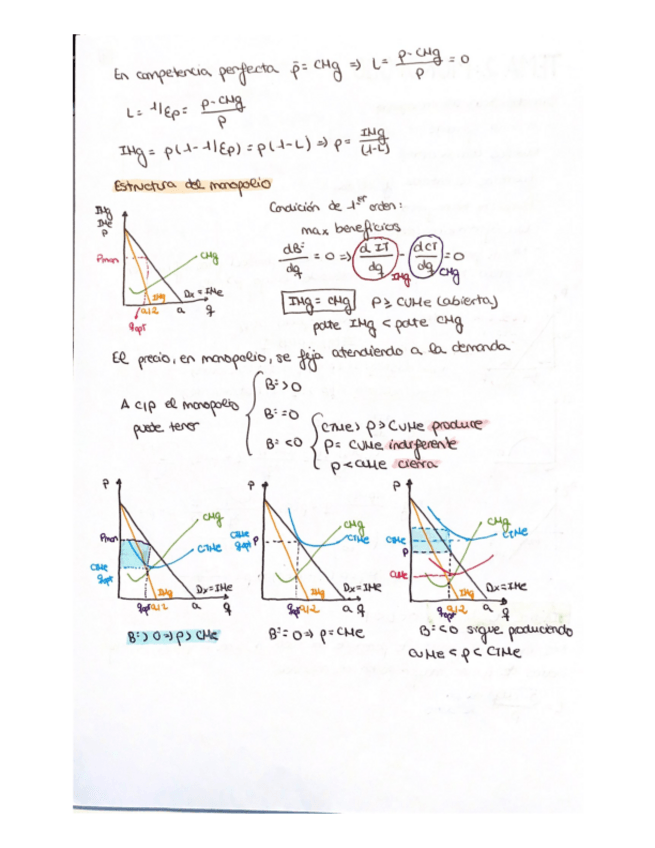 En competencia perfecta p̄ = CMg => L = p - CMg / p = 0
L = 1/Ep = p - CMg / p
IMg = p(1 - 1/Ep) = p(1 - L) => p = IMg / (1-L)
Estructura del monopolio
IMg
IMe
P
Pmon
CMg
IMg
Dx = IMe
a/2
a
q
qopt
Condición de 1er orden:
max beneficios
dBº/dq = 0 => d IT/dq - dCT/dq = 0
IMg
CMg
IMg = CMg
P ≥ CVMe (abierta)
pdte IMg < pdte CMg
El precio, en monopolio, se fija atendiendo a la demanda
A C/P el monopolio puede tener
Bº > 0
Bº = 0
Bº < 0
CTMe > p > CVMe produce
p = CVMe indiferente
p < CVMe cierra
P
Pmon
CTMe
qopt
CMg
CTMe
IMg
Dx = IMe
qopt
a/2
a
q
Bº > 0 => p > CMe
P
CTMe
qopt
P
CMg
CTMe
IMg
Dx = IMe
qopt
a/2
a
q
Bº = 0 => p = CMe
P
CTMe
P
CVMe
CMg
CTMe
IMg
Dx = IMe
qopt
a/2
a
q
Bº < 0 sigue produciendo
CVMe < p < CTMe